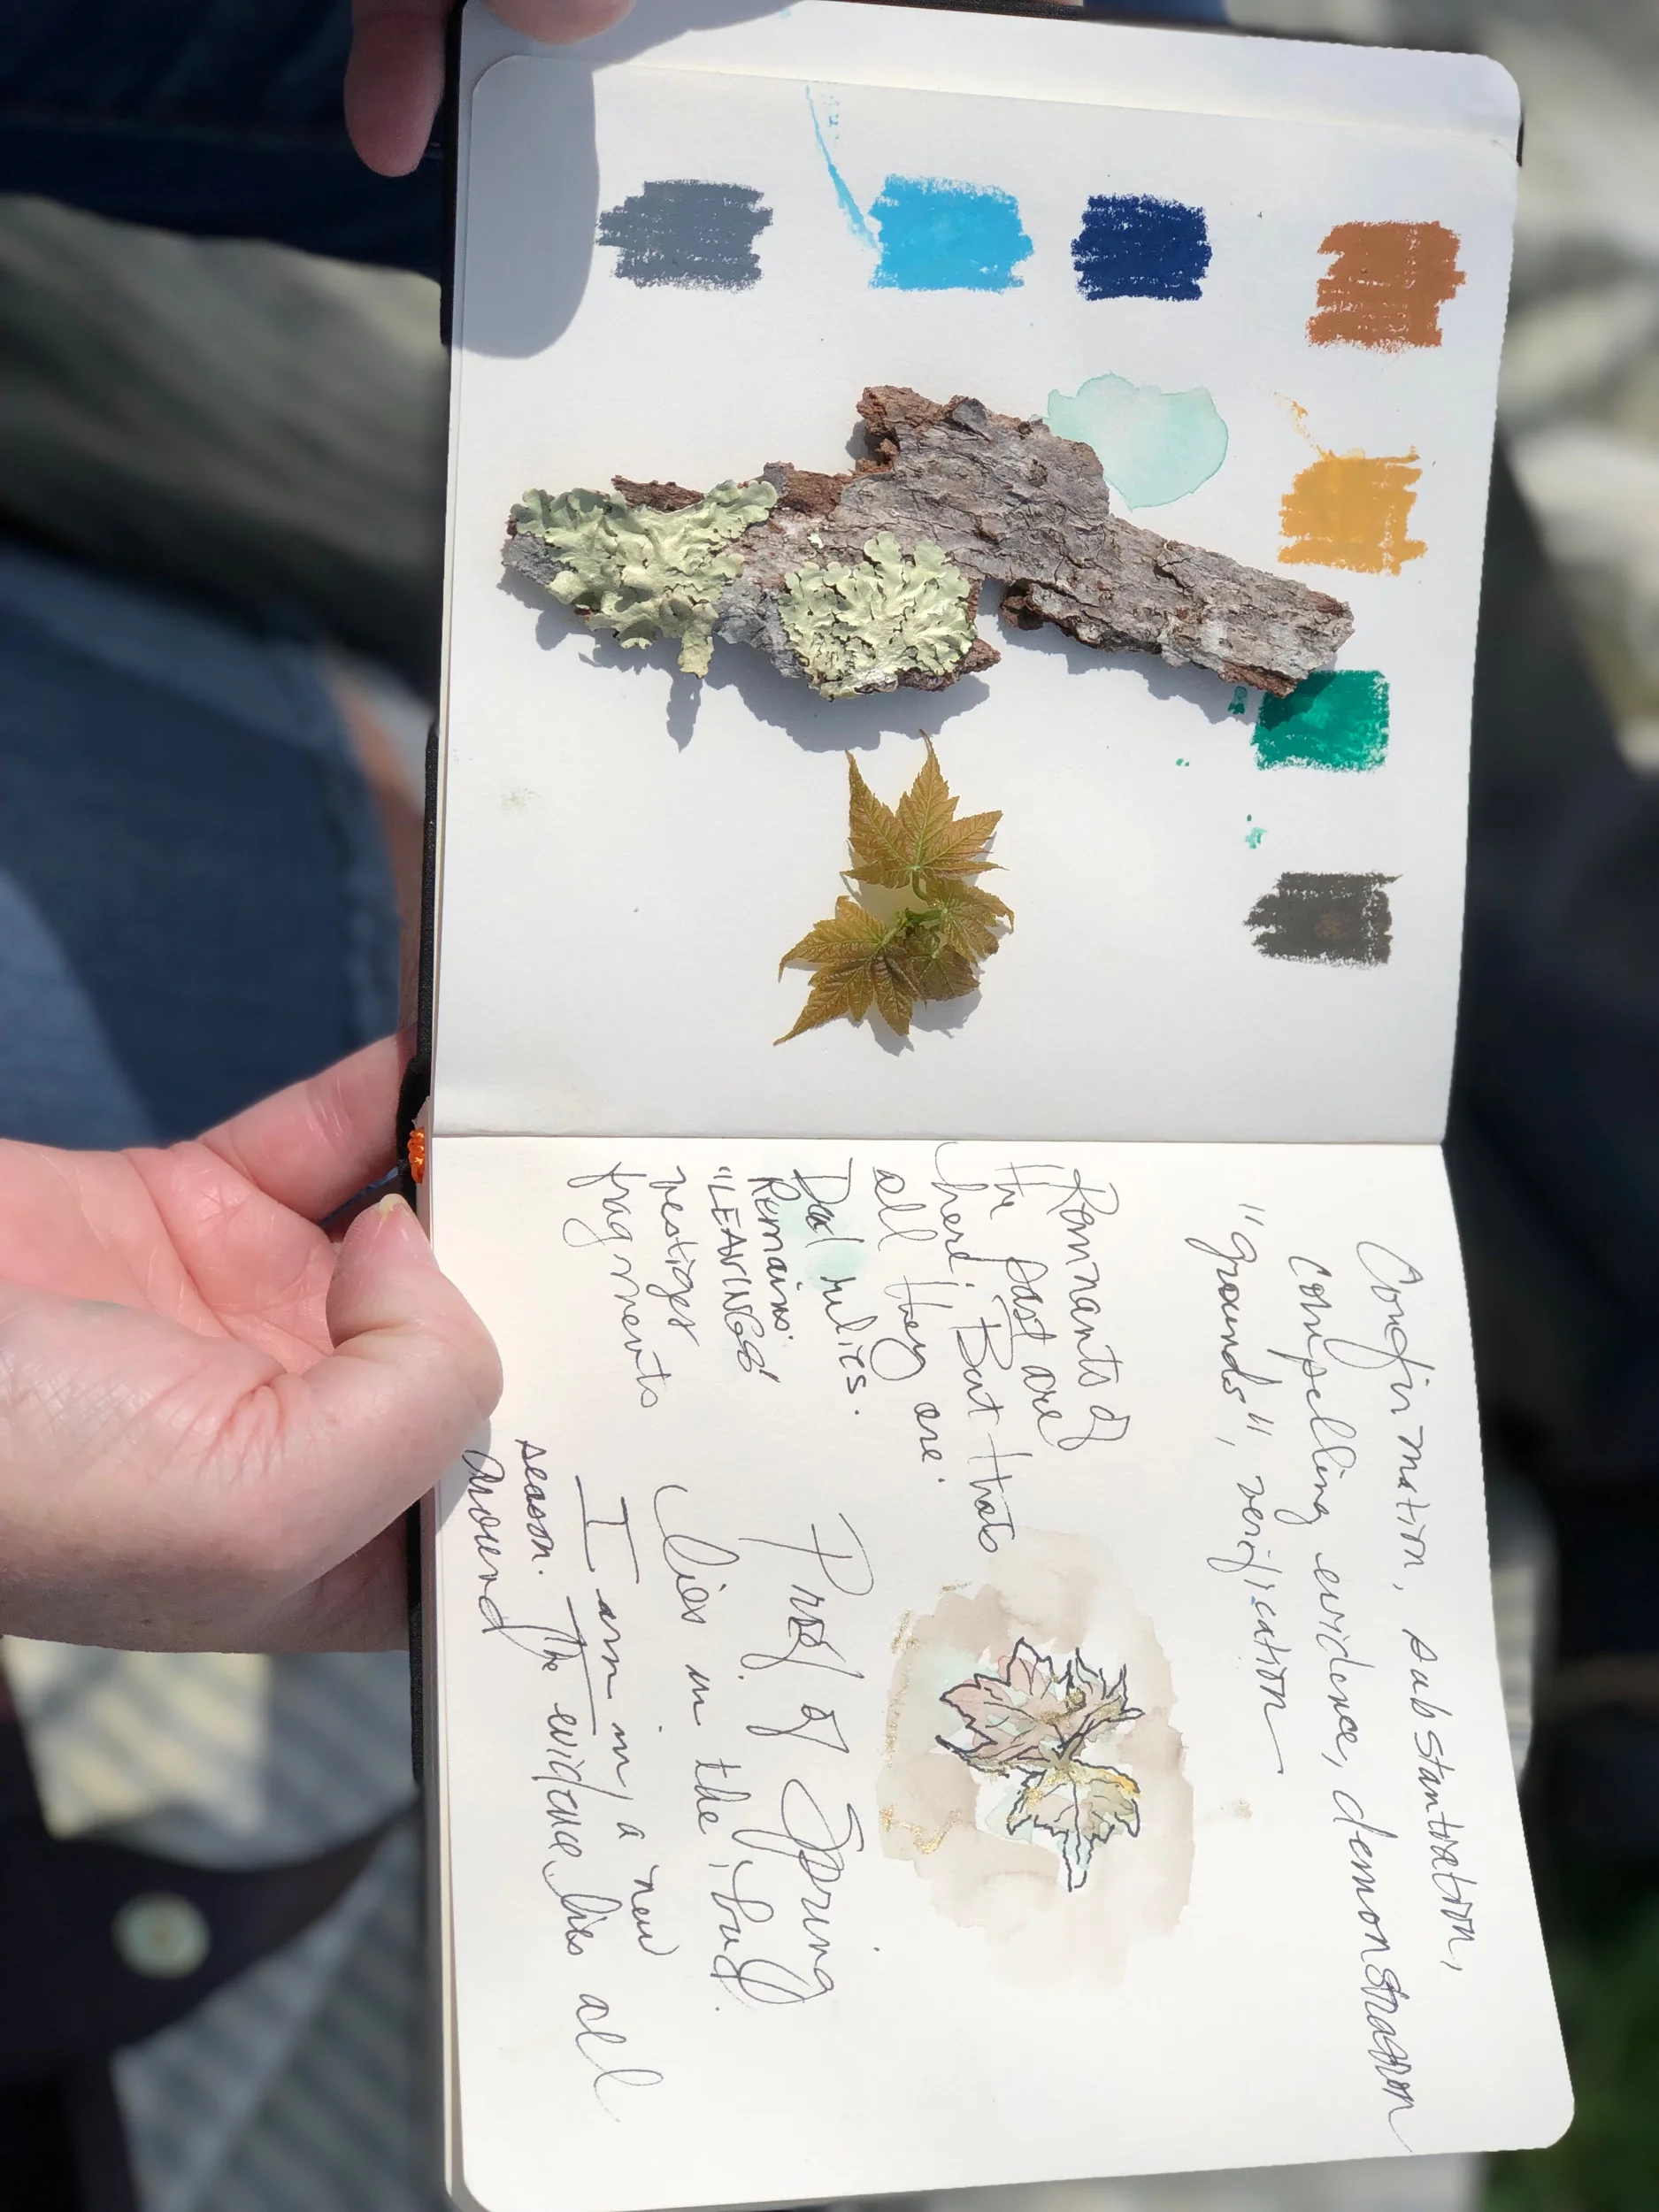 Confirmation, substantiation,
compelling evidence, demonstration
"grounds", verification
Remnants of
the past are
here. But thats
all they are.
Dead relics.
Remains.
"LEAVINGS"
vestiges
fragments
Proof of Spring
lies in the bud.
I am in a new
season. The evidence lies all
around